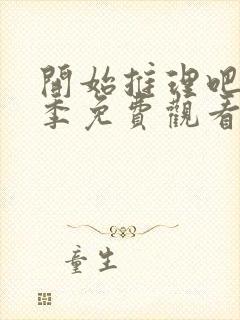 開始推理吧
季免費觀看
童生